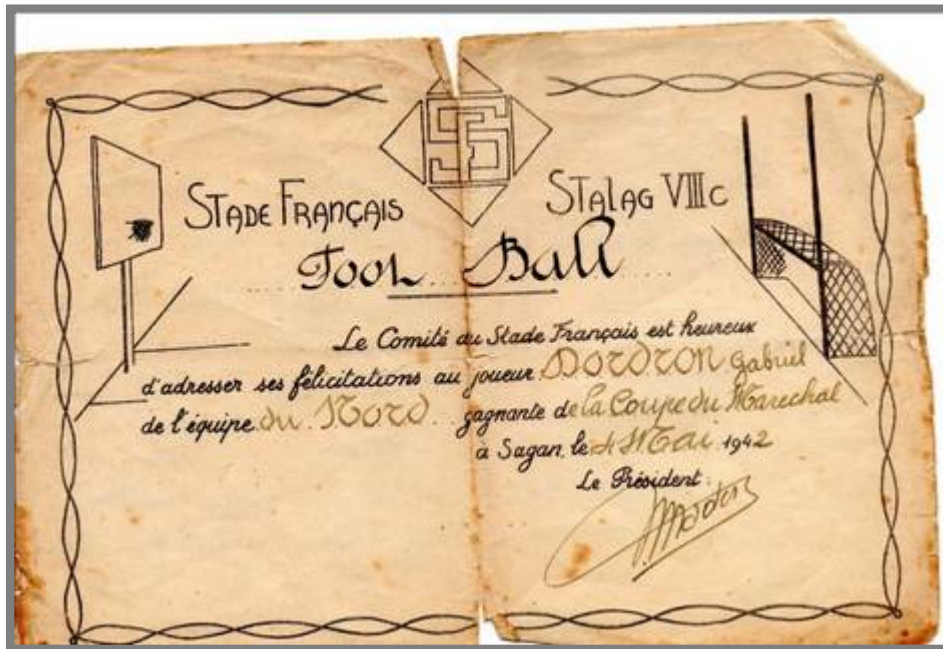 SF
STADE FRANÇAIS STALAG VIII C
Foot Ball
Le Comité du Stade Français est heureux
d'adresser ses félicitations au joueur Dordron Gabriel
de l'équipe du Nord gagnante de la Coupe du Marechal
à Sagan, le 4 Mai 1942
Le Président :